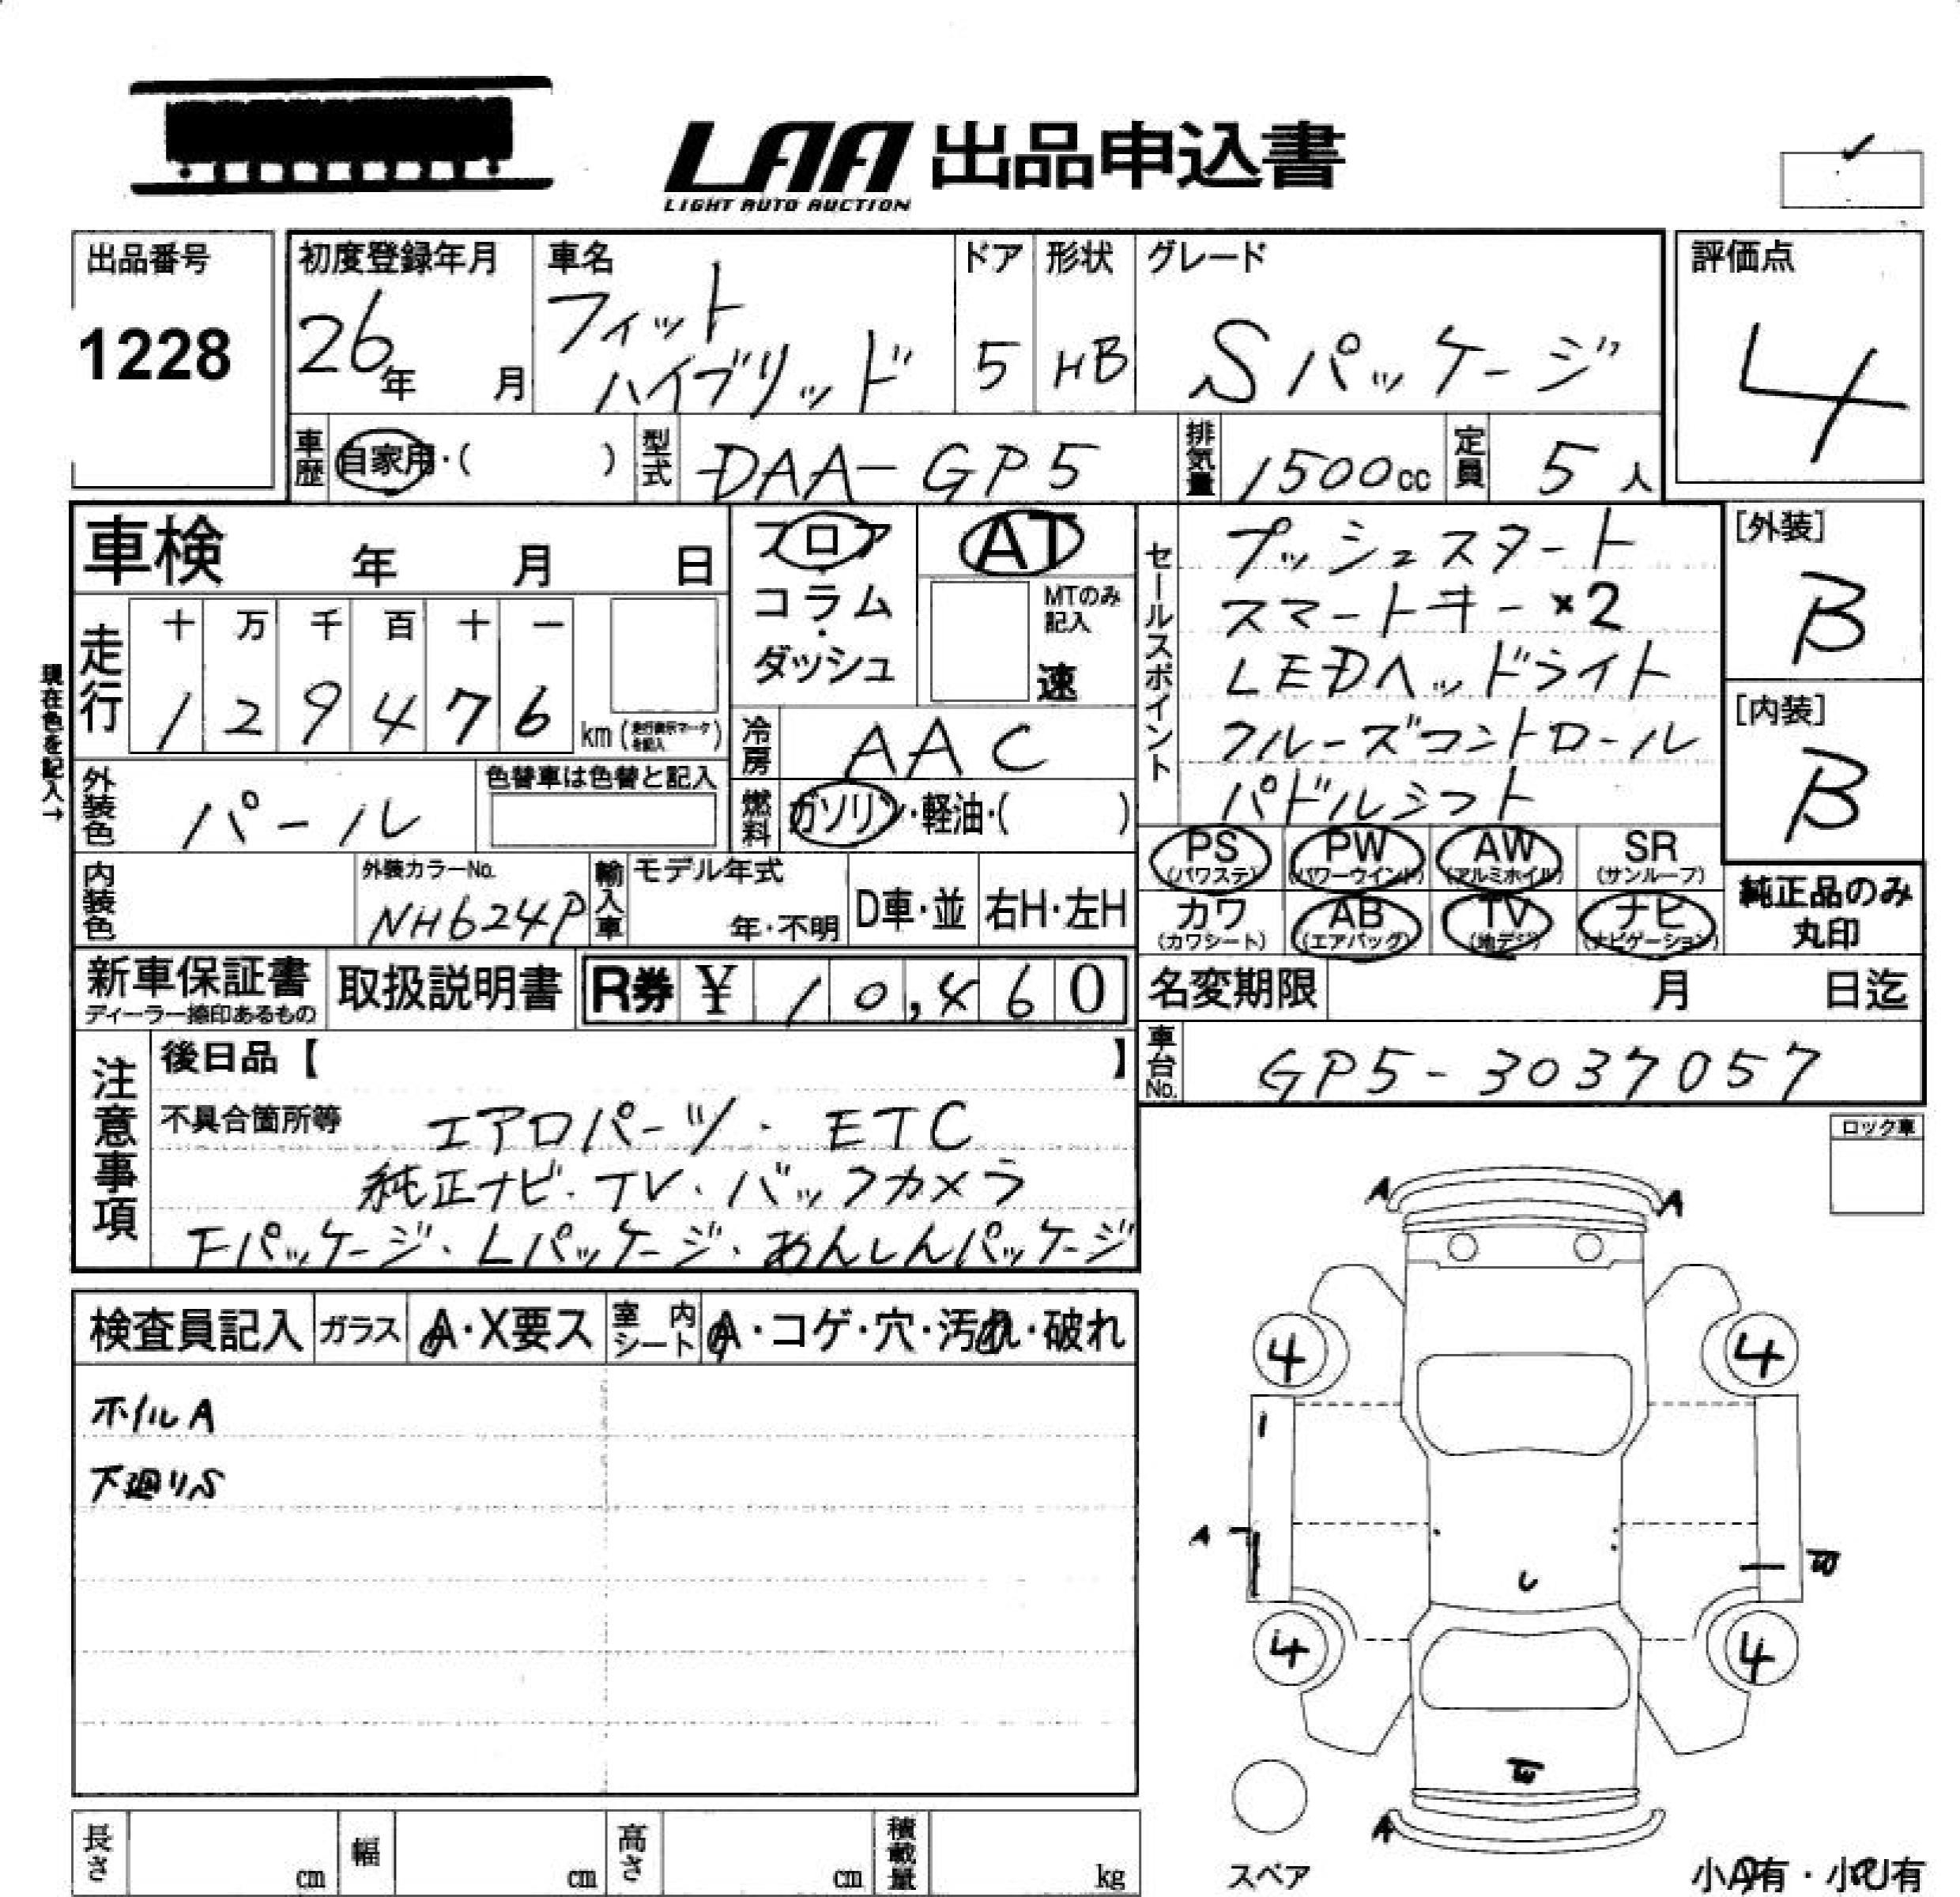 LAA 出品申込書
LIGHT AUTO AUCTION
出品番号
1228
初度登録年月
26年 月
車名
フィット
ハイブリッド
ドア
5
形状
HB
グレード
Sパッケージ
評価点
4
車歴 自家用・( )
型式 DAA-GP5
排気量 1500cc
定員 5人
車検 年 月 日
フロア
・
コラム
・
ダッシュ
AT
MTのみ
記入
速
走行
十 万 千 百 十 一
1 2 9 4 7 6 km (走行表示マークを記入)
現在色を記入→
外装色 パール
色替車は色替と記入
冷房 AAC
燃料 ガソリン・軽油・( )
内装色
外装カラーNo.
NH624P
輸入車
モデル年式
年・不明
D車・並
右H・左H
セールスポイント
プッシュスタート
スマートキー×2
LEDヘッドライト
クルーズコントロール
パドルシフト
[外装]
B
[内装]
B
PS
(パワステ)
PW
(パワーウインド)
AW
(アルミホイル)
SR
(サンルーフ)
カワ
(カワシート)
AB
(エアバッグ)
TV
(地デジ)
ナビ
(ナビゲーション)
純正品のみ
丸印
新車保証書
ディーラー捺印あるもの
取扱説明書
R券 ¥ 10,460
名変期限 月 日迄
車台No. GP5-3037057
注意事項
後日品【 】
不具合箇所等
エアロパーツ・ETC
純正ナビ・TV・バックカメラ
Fパッケージ・Lパッケージ・あんしんパッケージ
ロック車
検査員記入
ガラス
A・X要ス
室内
シート
A・コゲ・穴・汚れ・破れ
ホイルA
下廻りS
A A
4 4
A
4 4
A
スペア
小A有・小U有
長さ cm
幅 cm
高さ cm
積載量 kg